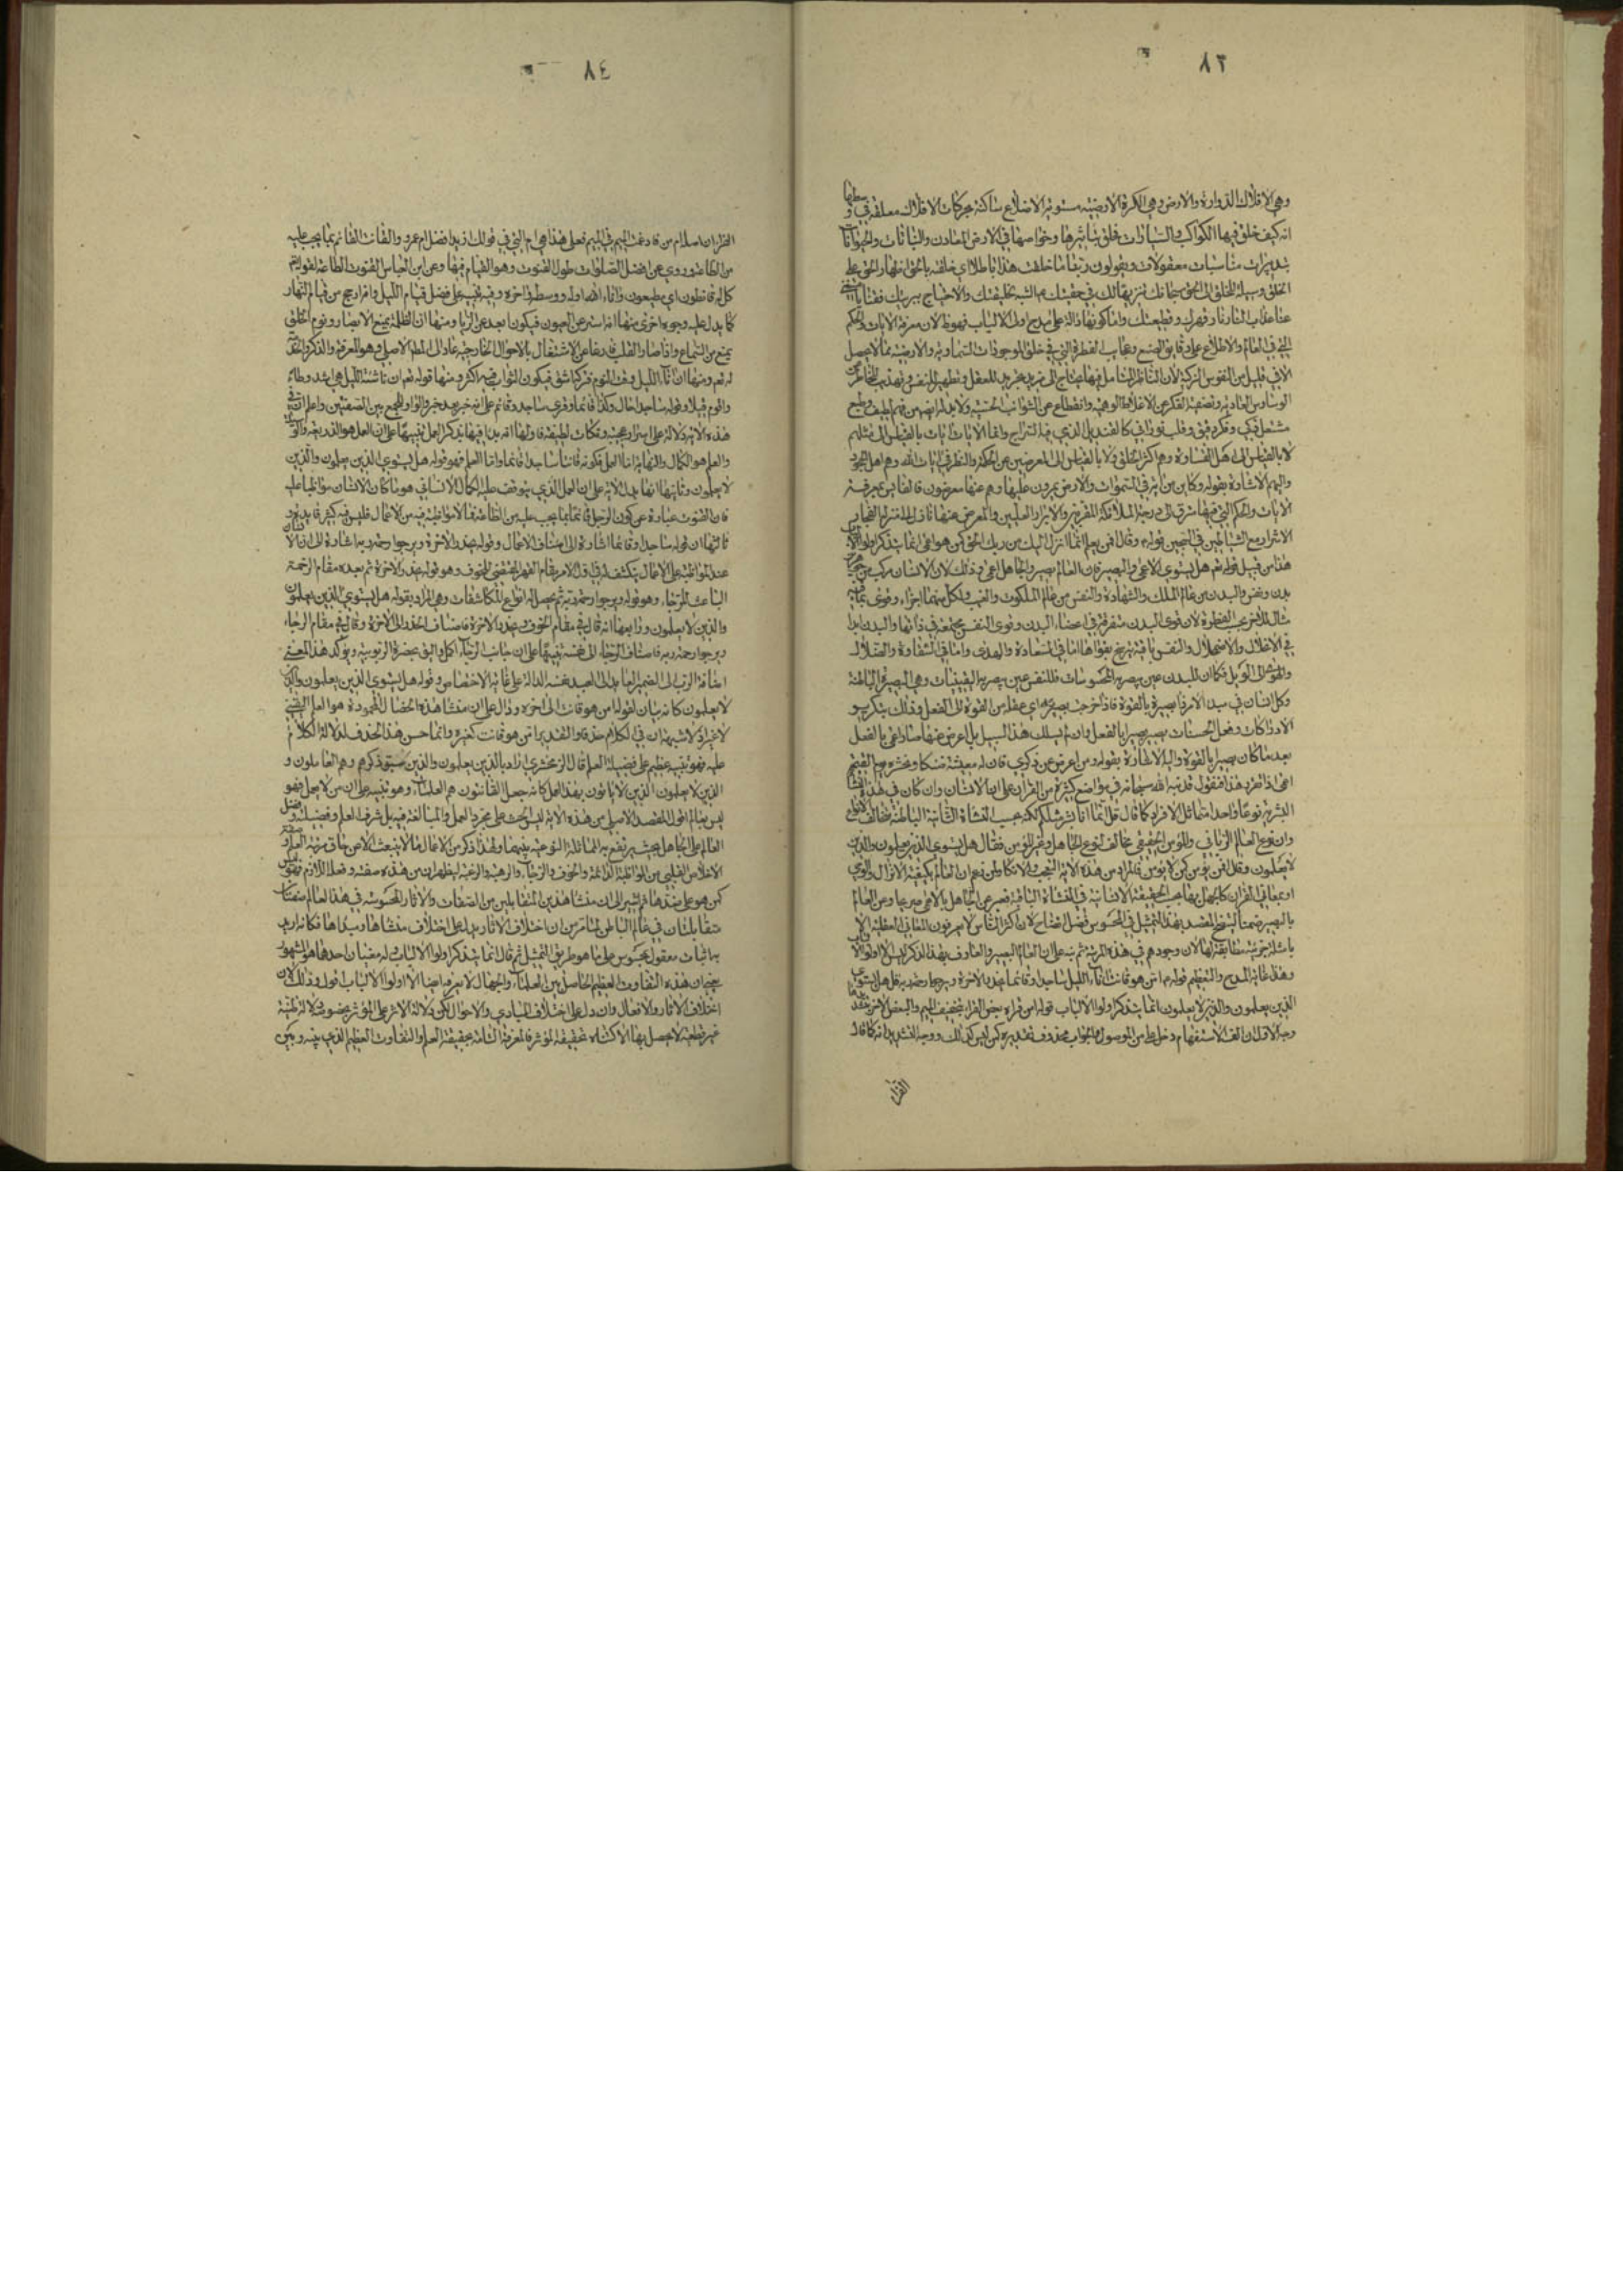 ٨٣
وهي الافلاك الدوارة والارض وهي الكرة الارضية مستوية الاضلاع ساكنة بحركات الافلاك معلقة في وسطها
انه كيف خلق فيها الكواكب والسيارات فخلق تاثيرها وخواصها في الارض المعادن والنباتات والحيوانات
مناسبات معقولات ويقولون ربنا ما خلقت هذا باطلا اي خلقته بالحق اظهار الحق على
الخلق وسيلة للخلق الى الحق سبحانك تنزيها لك في حقيقتك عن الشبه بخليقتك والاحتياج ببريتك فقنا
عذاب النار نار قهرك وقطيعتك وانما كونها دالة على مدح اولي الالباب فهو ظ لان معرفة الايات والحكم
التي في العالم والاطلاع على دقايق الصنع وعجايب الفطرة التي في خلق الموجودات السماوية والارضية مما لا يحصل
الا في قليل من النفوس الزكية لان الناظر المتامل فيها يحتاج الى مزيد تجريد للعقل وتطهير للنفس وتهذيب للخاطر عن
الوساوس العادية وتصفية الفكر عن الاغلاط الوهمية وانقطاع عن الشوائب الحسية ولا بد له ايضا من فهم لطيف وطبع
مشتعل ذكي وفكر دقيق وقلب نوراني كالقنديل الذي فيه السراج وانما الايات ايات بالقياس الى مثلهم
لا بالقياس الى اهل القساوة وهم اكثر الخلق ولا بالقياس الى المعرضين عن الحكمة والنظر في ايات الله وهم اهل الجحود
واليهم الاشارة بقوله وكاين من اية في السموات والارض يمرون عليها وهم عنها معرضون فالفايز بمعرفة
الايات والحكم التي فيها مترق الى درجة الملائكة المقربين والابرار العليين والمعرض عنها نازل الى منزلة الفجار
الاشرار مع الشياطين في السجين قوله م وقال افمن يعلم انما انزل اليك من ربك الحق كمن هو اعمى انما يتذكر اولوا الالباب
هذا من قبيل قوله تع هل يستوي الاعمى والبصير فان العالم بصير والجاهل اعمى وذلك لان الانسان مركب من جوهرين
بدن ونفس والبدن من عالم الملك والشهادة والنفس من عالم الملكوت والغيب ولكل منهما اجزاء وقوى
للاخر بحسب الفطرة لان قوى البدن متفرقة في اعضاء البدن وقوى النفس مجتمعة في ذاتها والبدن ابدا
في الانحلال والاضمحلال والنفس باقية بقواها اما في السعادة والهدى واما في الشقاوة والضلال
فكان للبدن عين يبصر به المحسوسات فللنفس عين يبصر به اليقينيات وهي البصيرة الباطنة
وكل انسان في مبدا الامر ذا بصيرة بالقوة فاذا خرجت بصيرته اي عقله من القوة الى الفعل وذلك بتكرير
الادراكات وفعل الحسنات يصير بصيرا بالفعل وان لم يسلك هذا السبيل بل اعرض عنها صار اعمى بالفعل
بعد ما كان بصيرا بالقوة واليه الاشارة بقوله ومن اعرض عن ذكري فان له معيشة ضنكا ونحشره يوم القيمة
اعمى اذا تقرر هذا فنقول قد نبه الله سبحانه في مواضع كثيرة من القران على ان الانسان وان كان في هذه النشأة
البشرية نوعا واحدا متماثل الافراد كما قال قل انما انا بشر مثلكم لكنه بحسب النشاة الثانية الباطنة متخالف الانواع
وان نوع العالم الرباني والمؤمن الحقيقي مخالف لنوع الجاهل وغير المؤمن فقال هل يستوي الذين يعلمون والذين
لا يعلمون وقال افمن يؤمن كمن لا يؤمن فالمراد من هذه الاية التعجب والانكار لمن زعم ان العالم بكيفية الانزال والوحي
او بمعاني القران كالجاهل بها بحسب الحقيقة الانسانية في النشاة الباقية فعبر عن الجاهل بالاعمى صريحا وعن العالم
بالبصير ضمنا لقصد بهذا التمثيل في المحسوس فضل ايضاح لان اكثر الناس لا يعرفون المعاني العقلية الا
بامثلة جزئية مطابقة لها لان وجودهم في هذه المرتبة ثم نبه على ان العالم البصير والعارف بهذا الذكر ليس الا اولوا الالباب
وهذا غاية المدح والتعظيم قوله م امن هو قانت اناء الليل ساجدا وقائما يحذر الاخرة ويرجوا رحمة ربه قل هل يستوي
الذين يعلمون والذين لا يعلمون انما يتذكر اولوا الالباب قوله امن قراه بعض القراء بتخفيف الميم والبعض الاخر بتشديدها
وجه الاول ان الف الاستفهام دخل على من الموصولة والجواب محذوف تقديره كمن ليس كذلك ووجه التشديد انه كما قال
القراء
٨٤
القراء ان اصله ام من فادغمت الميم في الميم فعلى هذا هي ام التي في قولك ازيد افضل ام عمرو والقانت القائم بما يجب عليه
من الطاعة وروي عن افضل الصلوات طول القنوت وهو القيام فيها وعن ابن العباس القنوت الطاعة لقوله تع
كل له قانطون اي مطيعون واناء الليل اوله ووسطه واخره وفيه تنبيه على فضل قيام الليل وانه ارجح من قيام النهار
كما يدل عليه وجوه اخرى منها انه استر عن العيون فيكون ابعد عن الريا ومنها ان الظلمة يمنع الابصار ونوم الخلق
يمنع من السماع واذا صار القلب فارغا عن الاشتغال بالاحوال الخارجية عاد الى المطلب الاصلي وهو المعرفة والذكر والخدمة
له تع ومنها ان اناء الليل وقت النوم فتركها شق فيكون الثواب فيه اكثر ومنها قوله تع ان ناشئة الليل هي اشد وطاء
واقوم قيلا وقوله ساجدا حال وكذا قائما وقرئ ساجد وقائم على انه خبر بعد خبر والواو للجمع بين الصفتين واعلم ان في
هذه الاية دلالة على اسرار عجيبة ونكات لطيفة فاولها انه بدا فيها بذكر العمل تنبيها على ان العمل هو الذريعة والوسيلة
والعلم هو الكمال والنهاية اما العمل فكونه قانتا ساجدا قائما واما العلم فهو قوله هل يستوي الذين يعلمون والذين
لا يعلمون وثانيها انها يدل الاية على ان العمل الذي يتوقف عليه الكمال الانساني هو ما كان الانسان مواظبا عليه
فان القنوت عبارة عن كون الرجل قائما بما يجب عليه من الطاعة فما لا مواظبة فيه من الاعمال فليس فيه كثير فايدة و
ثالثها ان قوله ساجدا وقائما اشارة الى اصناف الاعمال وقوله يحذر الاخرة ويرجوا رحمة ربه اشارة الى ان الانسان
عند المواظبة على الاعمال ينكشف له في اول الامر مقام القهر المقتضي للخوف وهو قوله يحذر الاخرة ثم بعده مقام الرحمة
الباعث للرجاء وهو قوله ويرجوا رحمة ربه ثم يحصل له انواع المكاشفات وهي المراد بقوله هل يستوي الذين يعلمون
والذين لا يعلمون ورابعها انه قال في مقام الخوف يحذر الاخرة فاضاف الحذر الى الاخرة وقال في مقام الرجاء
ويرجوا رحمة ربه فاضاف الرجاء الى نفسه تنبيها على ان جانب الرجاء اكمل واليق بحضرة الربوبية ويؤكد هذا المعنى
اضافة الرب الى الضمير العايد الى العبد نفسه الدالة على غاية الاختصاص وقوله هل يستوي الذين يعلمون والذين
لا يعلمون كانه بيان لقوله امن هو قانت الى اخره ودال على ان منشا هذه الخصال المحمودة هو العلم اليقيني
لا غير ولا شبهة ان في الكلام حذفا والتقدير امن هو قانت كغيره وانما حسن هذا الحذف لدلالة الكلام
عليه فهو تنبيه عظيم على فضيلة العلم قال الزمخشري اراد بالذين يعلمون والذين سبق ذكرهم وهم العاملون و
الذين لا يعلمون الذين لا ياتون بهذا العمل كانه جعل القانتون هم العلماء وهو تنبيه على ان من لا يعمل فهو
ليس بعالم اقول المقصد الاصلي من هذه الاية ليس الحث على مجرد العمل والمبالغة فيه بل شرف العلم وفضيلته وفضل
العالم على الجاهل بحيث يرتفع به المماثلة النوعية بينهما ولهذا ذكر من الاعمال ما لا ينبعث الا عن حاق مرتبة العلم و
الاخلاص القلبي من المواظبة الدائمة والخوف والرجاء والرهبة والرغبة ليظهر ان من هذه صفته وفعله اللازم فهو ليس
كمن هو على ضدها ثم اشير الى ان منشا هذين المتقابلين من الصفات والاثار المحسوسة في هذا العالم صفتان
متقابلتان في عالم الباطن لما تقرر من ان اختلاف الاثار يدل على اختلاف منشاها ومبداها فكانه اريد
به اثبات معقول بمحسوس على ما هو طريق التمثيل ثم قال انما يتذكر اولوا الالباب له معنيان احدهما هو المشهور
يعني ان هذه التفاوت العظيم الحاصل بين العلماء والجهال لا يعرفه ايضا الا اولوا الالباب قوله وذلك لان
اختلاف الاثار والافعال وان دل على اختلاف المبادي والاحوال لكن دلالة الاثر على المؤثر بخصوصه دلالة ظنية
غير قطعية لا يحصل بها الاكتناه بحقيقة المؤثر فالمعرفة التامة بحقيقة العلم والتفاوت العظيم الذي بينه وبين